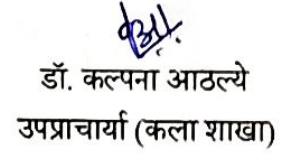 डॉ. कल्पना आठल्ये
उपप्राचार्या (कला शाखा)